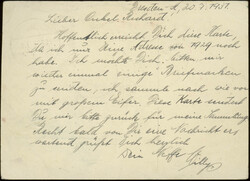 Dresden d, 20.7.1951.
Lieber Onkel Leohard!
Hoffentlich erreicht Dich diese Karte,
da ich nur Deine Adresse von 1949 noch
habe. Ich möchte Dich, bitten mir
wieder einmal einige Briefmarken
zu senden, ich sammle nach wie vor
mit großem Eifer. Diese Karte sendest
Du mir bitte zurück für meine Sammlung.
bald von Dir eine Nachricht er-
grüßt Dich herzlich
Dein Neffe
Willy